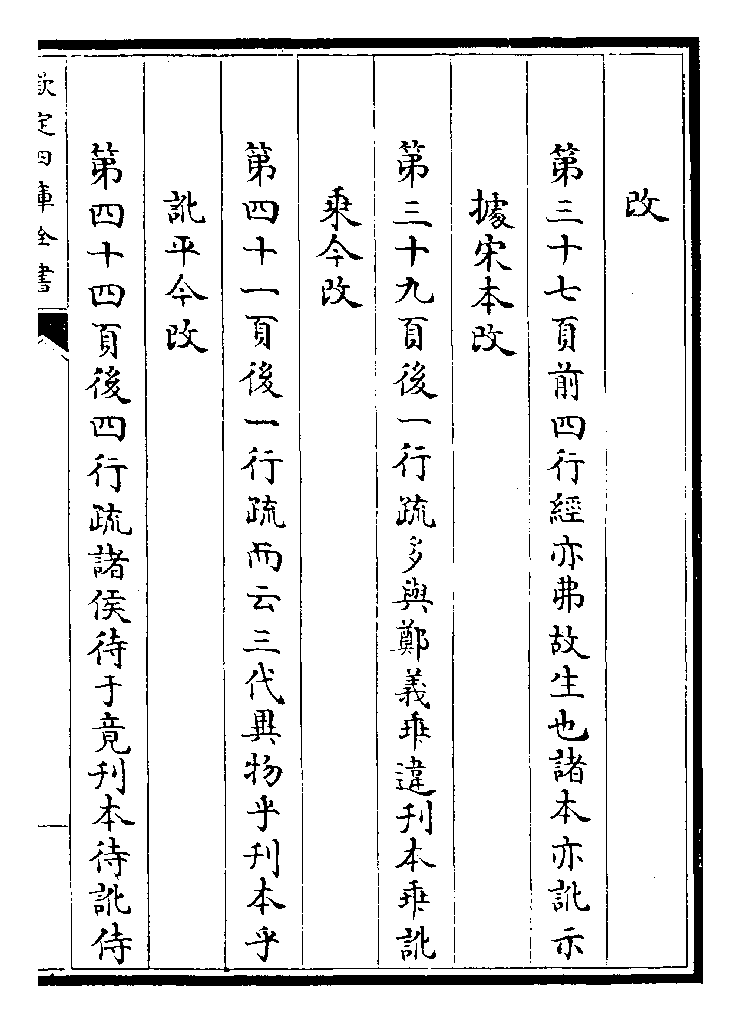 改
第三十七頁前四行經亦弗故生也諸本亦訛示
據宋本改
第三十九頁後一行疏多與鄭義乖違刊本乖訛
乘今改
第四十一頁後一行疏而云三代異物乎刊本乎
訛平今改
第四十四頁後四行疏諸侯待于竟刊本待訛侍
欽定四庫全書